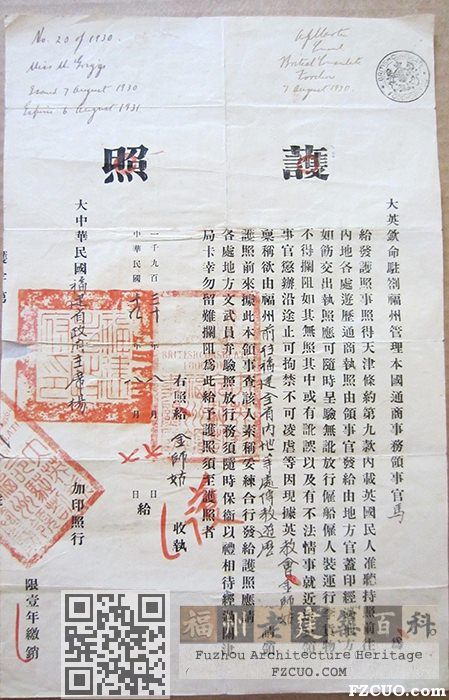 No. 20 of 1930.
Miss M Griggs
Issued 7 August 1930
Expires 6 August 1931
British Consulate
7 August 1930.
護照
大英欽命駐劄福州管理本國通商事務領事官馬
給發護照事照得天津條約第九款內載英國民人准聽持照前往
內地各處遊歷通商執照由領事官發給由地方官蓋印經
如飭交出執照應可隨時呈驗無訛放行僱船僱人裝運行李貨物
不得攔阻如其無照其中或有訛誤以及有不法情事就近
事官懲辦沿途止可拘禁不可凌虐等因現據英教會金師姑
稟稱欲由福州前往福建全省內地等處傳教遊歷
護照前來據此本領事查該人素稱妥練合行發給護照應請
各處地方文武員弁驗照放行務須隨時保衛以禮相待經過關津
局卡幸勿留難攔阻爲此給予護照須至護照者
右照給 金師姑 收執
一千九百三十年八月 日 給
中華民國十九年八月 日
大中華民國福建省政府主席楊 加印照行
限壹年繳銷
福州老建築百科
Fuzhou Architecture Heritage
FZCUO.COM
FZCuo.com